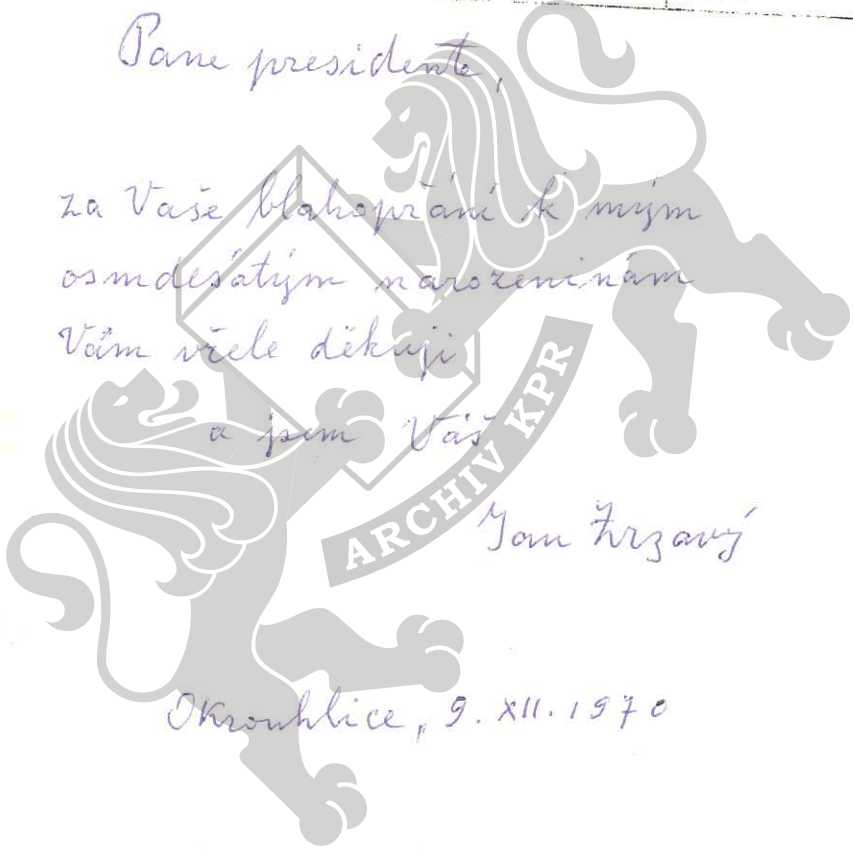 Pane presidente,
za Vaše blahopřání k mým
osmdesátým narozeninám
Vám vřele děkuji
a jsem Váš
ARCHIV KPR
Jan Zrzavý
Okrouhlice, 9. XII. 1970